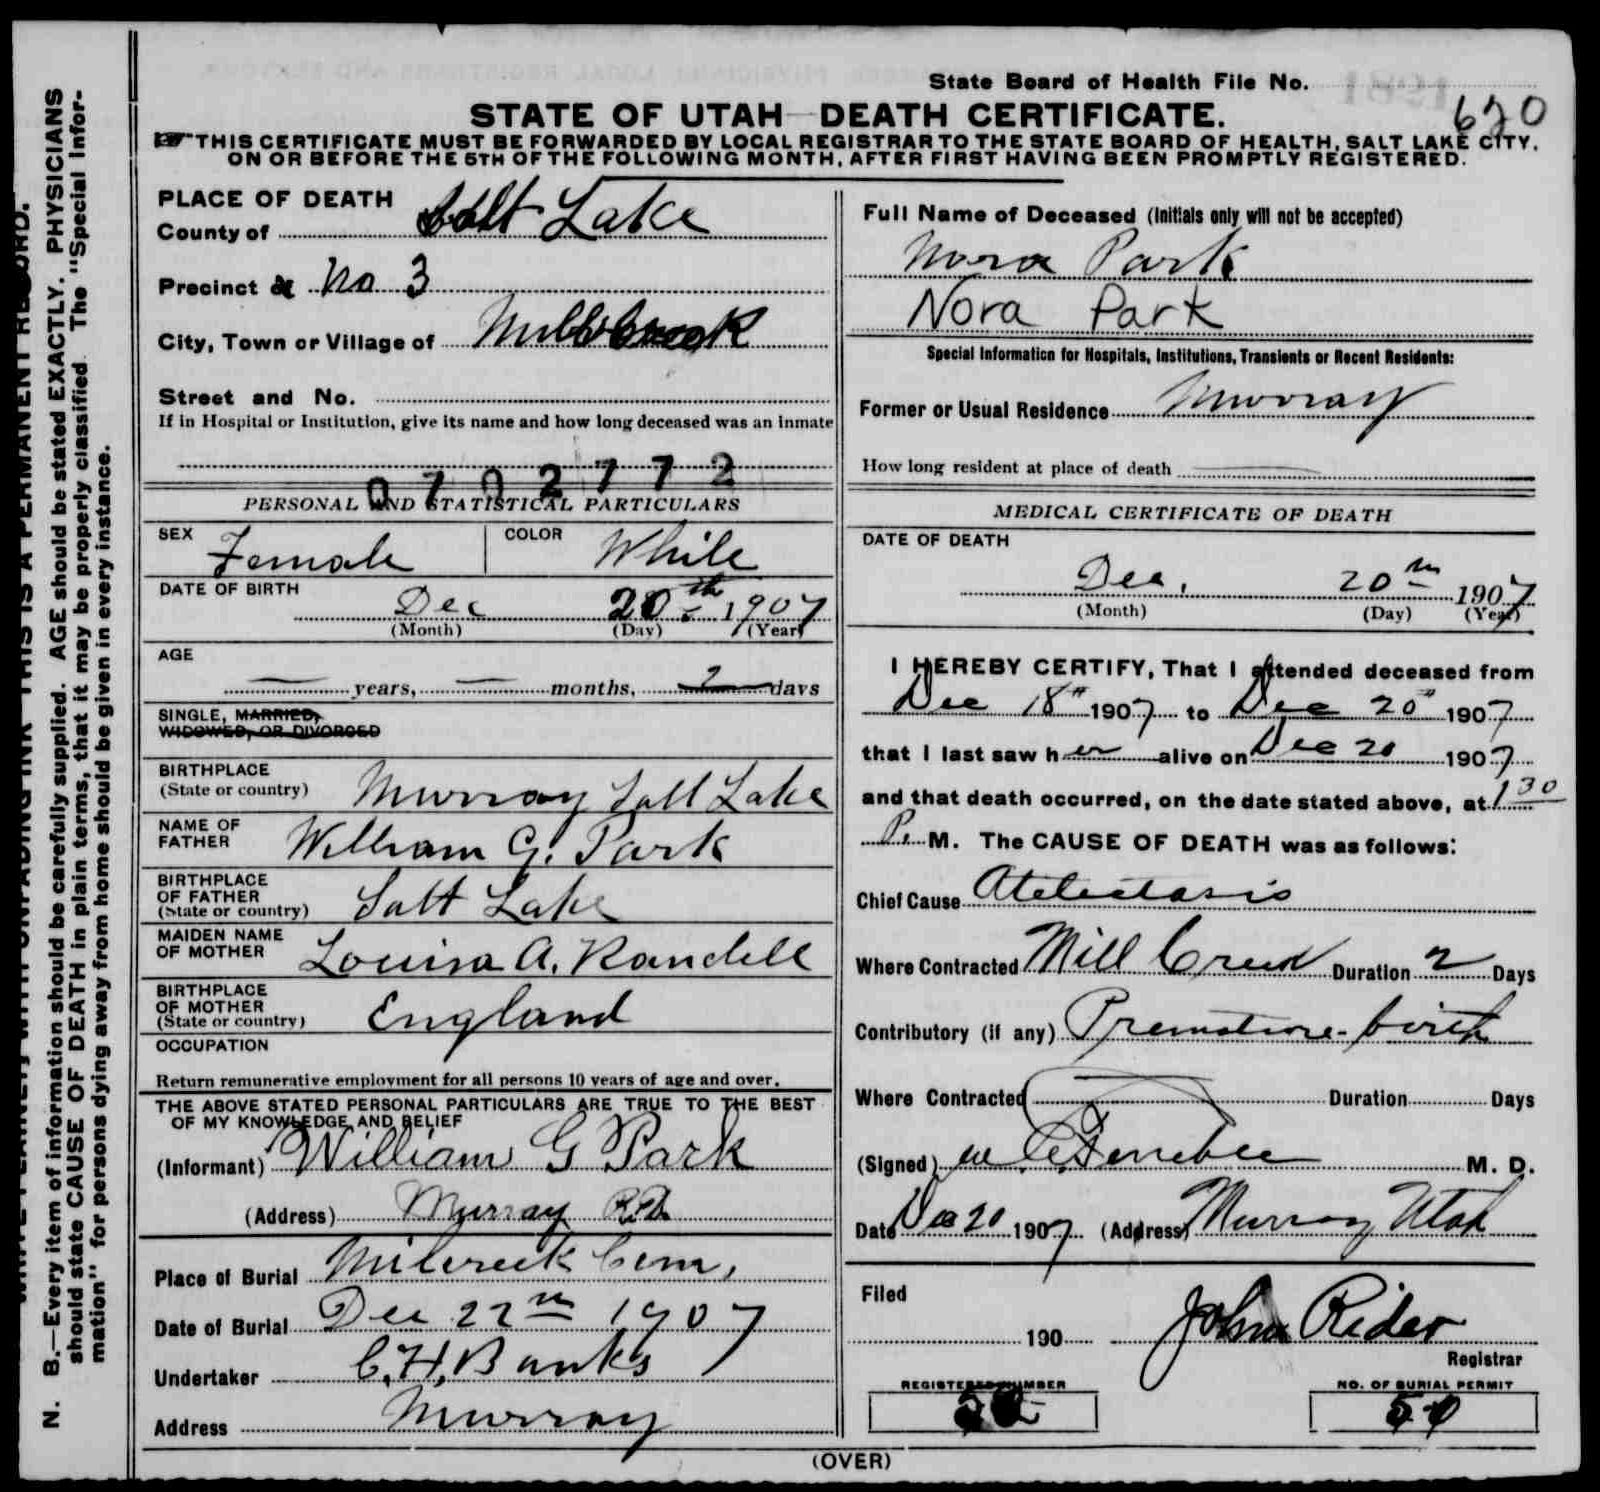 State Board of Health File No.
1981
620
STATE OF UTAH—DEATH CERTIFICATE.
THIS CERTIFICATE MUST BE FORWARDED BY LOCAL REGISTRAR TO THE STATE BOARD OF HEALTH, SALT LAKE CITY,
ON OR BEFORE THE 5TH OF THE FOLLOWING MONTH, AFTER FIRST HAVING BEEN PROMPTLY REGISTERED.
PLACE OF DEATH
County of Salt Lake
Precinct No 3
City, Town or Village of
Street and No.
If in Hospital or Institution, give its name and how long deceased was an inmate
0702772
PERSONAL AND STATISTICAL PARTICULARS
SEX Female COLOR White
DATE OF BIRTH Dec 20th 1907
(Month) (Day) (Year)
AGE
— years, — months, 2 days
SINGLE, MARRIED,
WIDOWED, OR DIVORCED
BIRTHPLACE
(State or country) Murray Salt Lake
NAME OF
FATHER William G. Park
BIRTHPLACE
OF FATHER
(State or country) Salt Lake
MAIDEN NAME
OF MOTHER Louisa A. Randell
BIRTHPLACE
OF MOTHER
(State or country) England
OCCUPATION
Return remunerative employment for all persons 10 years of age and over.
THE ABOVE STATED PERSONAL PARTICULARS ARE TRUE TO THE BEST
OF MY KNOWLEDGE AND BELIEF
(Informant) William G Park
(Address) Murray
Place of Burial Milcreek Cem.
Date of Burial Dec 22nd 1907
Undertaker C. H. Banks
Address Murray
Full Name of Deceased (Initials only will not be accepted)
Nora Park
Nora Park
Special Information for Hospitals, Institutions, Transients or Recent Residents:
Former or Usual Residence Murray
How long resident at place of death
MEDICAL CERTIFICATE OF DEATH
DATE OF DEATH
Dec. 20th 1907
(Month) (Day) (Year)
I HEREBY CERTIFY, That I attended deceased from
Dec 18th 1907 to Dec 20th 1907
that I last saw her alive on Dec 20 1907
and that death occurred, on the date stated above, at 1 30
P. M. The CAUSE OF DEATH was as follows:
Chief Cause Atelectasis
Where Contracted Mill Creek Duration 2 Days
Contributory (if any) Premature birth
Where Contracted Duration Days
(Signed) M. D.
Date Dec 20 1907 (Address) Murray Utah
Filed
190 John Rider
Registrar
REGISTERED NUMBER
NO. OF BURIAL PERMIT
(OVER)
N. B.—Every item of information should be carefully supplied. AGE should be stated EXACTLY. PHYSICIANS
should state CAUSE OF DEATH in plain terms, that it may be properly classified. The "Special Infor-
mation" for persons dying away from home should be given in every instance.